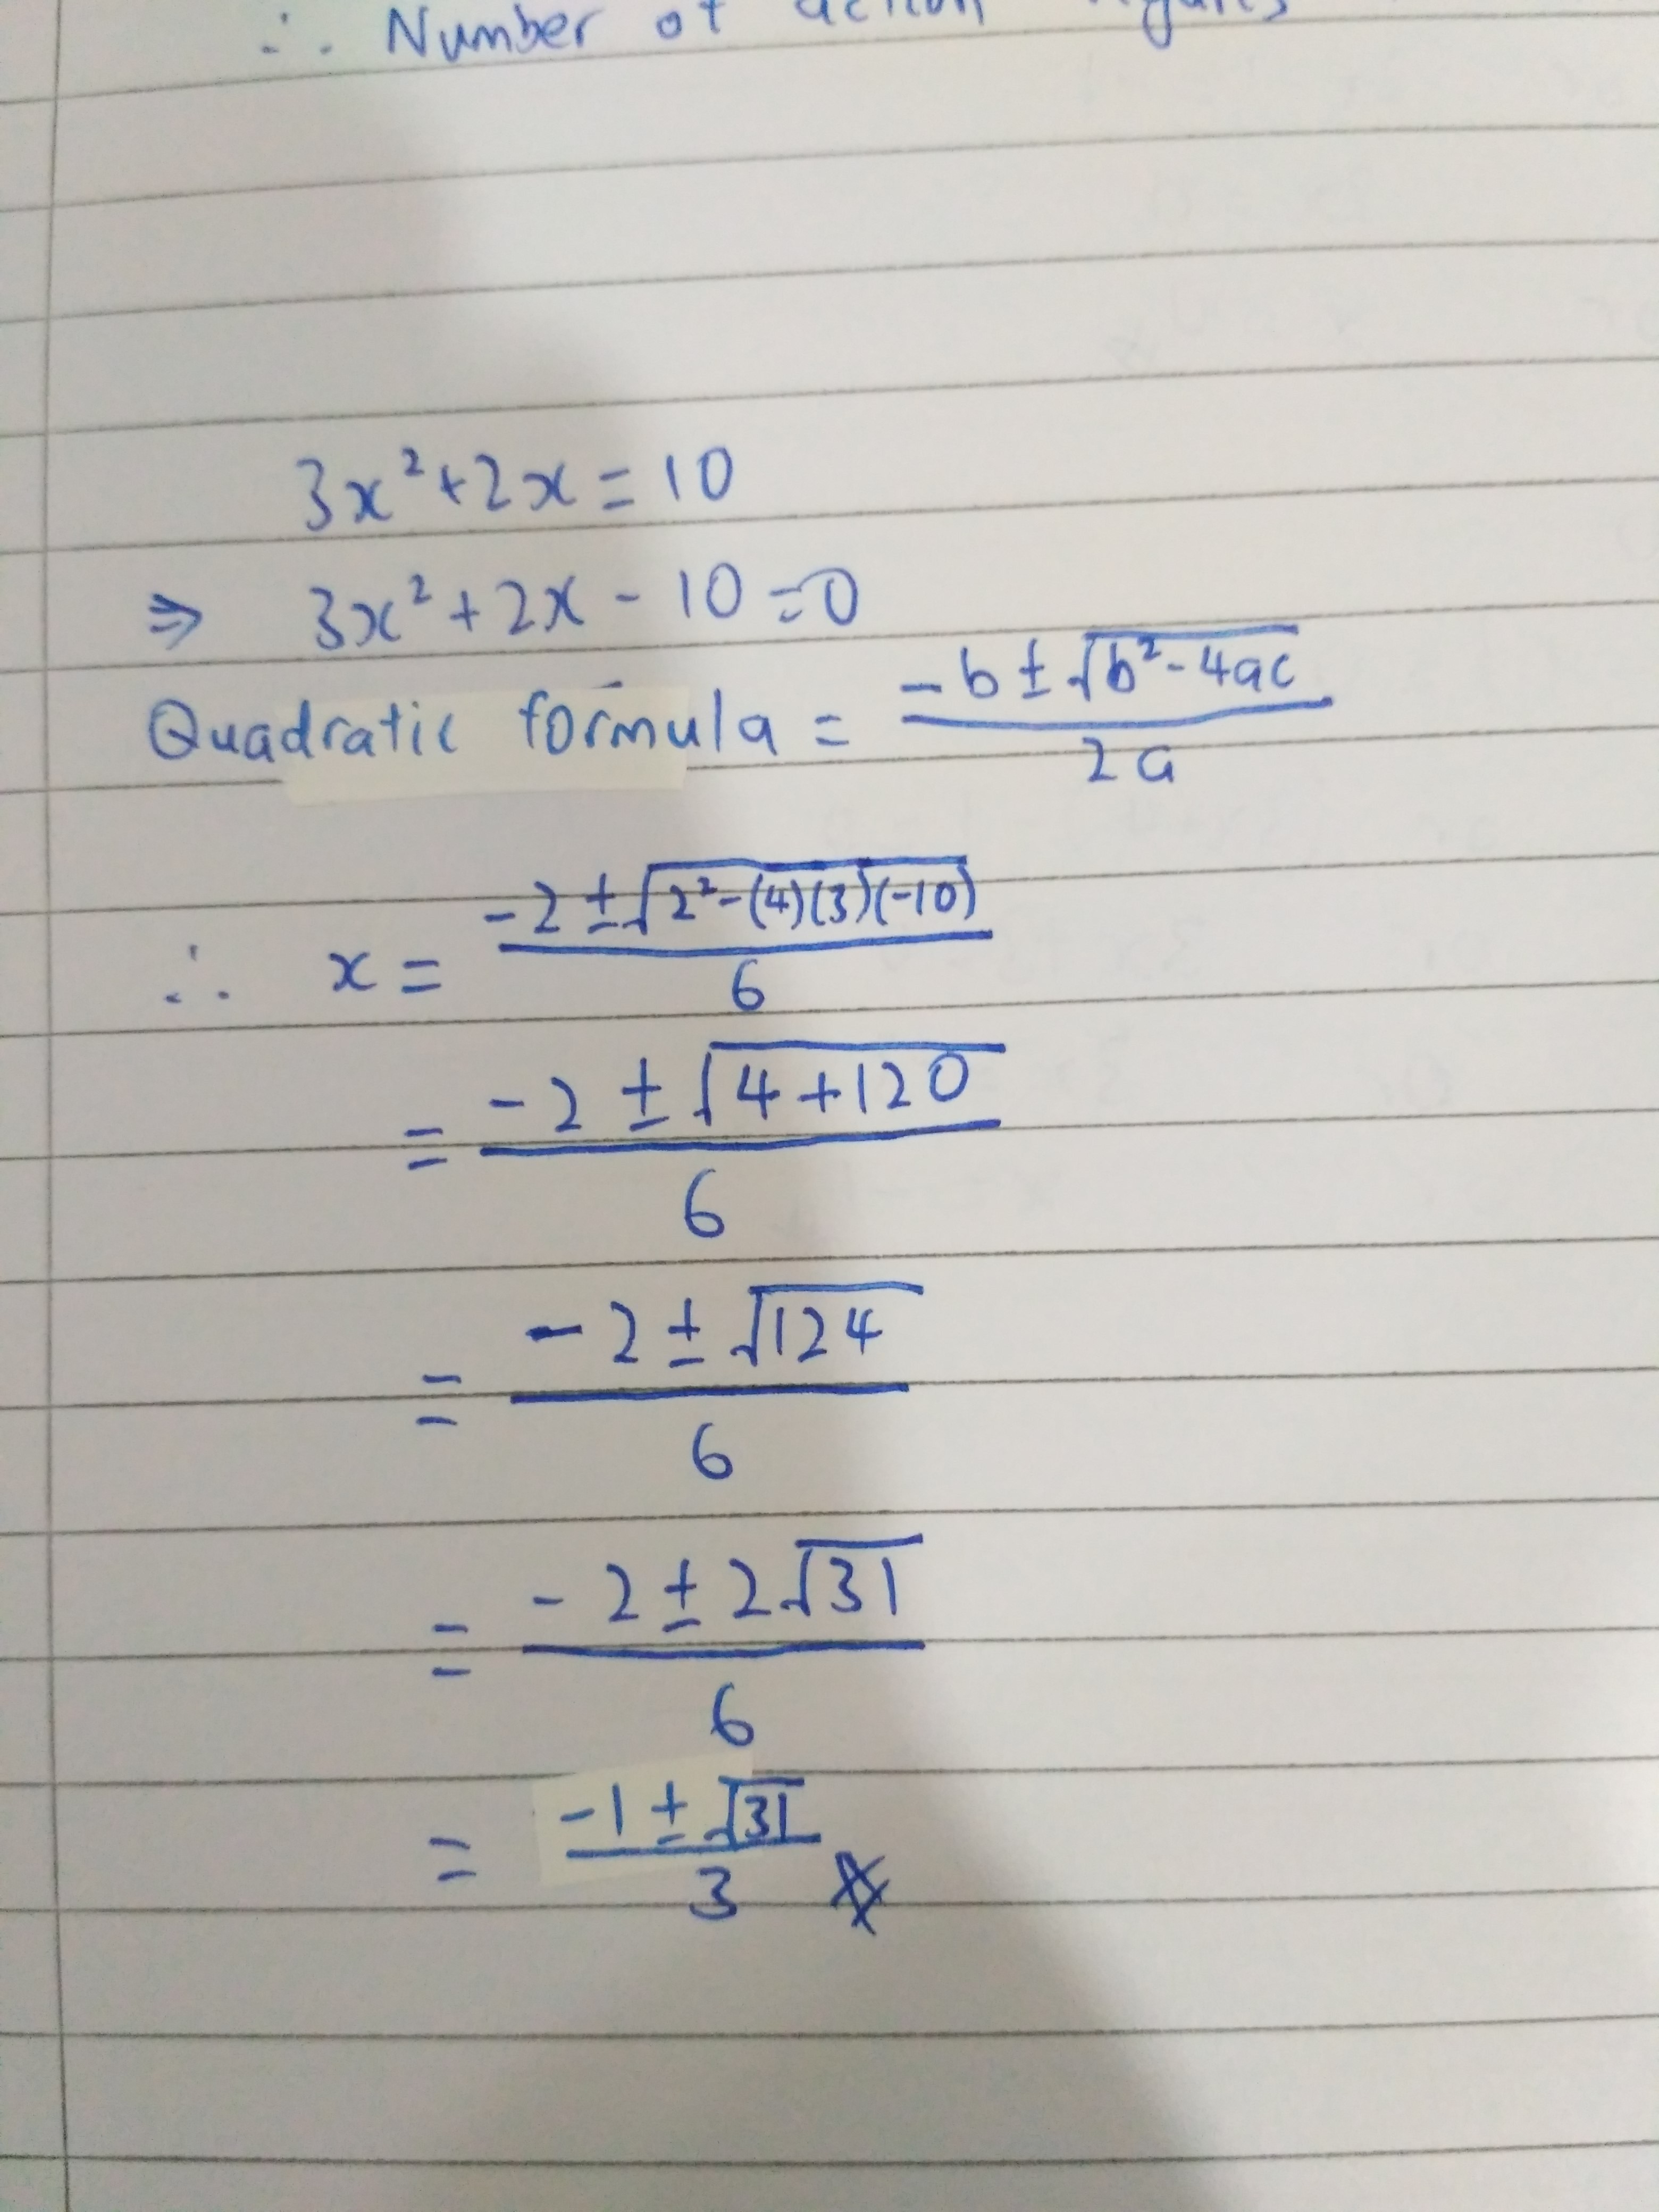 ∴ Number of action figures
3x² + 2x = 10
⇒ 3x² + 2x - 10 = 0
Quadratic formula = (-b ± √(b² - 4ac))/(2a)
∴ x = (-2 ± √(2² - (4)(3)(-10)))/6
= (-2 ± √(4 + 120))/6
= (-2 ± √124)/6
= (-2 ± 2√31)/6
= (-1 ± √31)/3